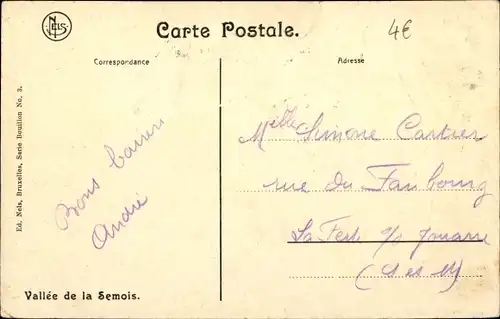 NELS
Carte Postale.
4€
Correspondance
Adresse
Ed. Nels, Bruxelles, Serie Bouillon No. 3.
Bons baisers
André
Melle Simone Cartier
rue du Faubourg
La Ferté s/s Jouarre
(S et M)
Vallée de la Semois.